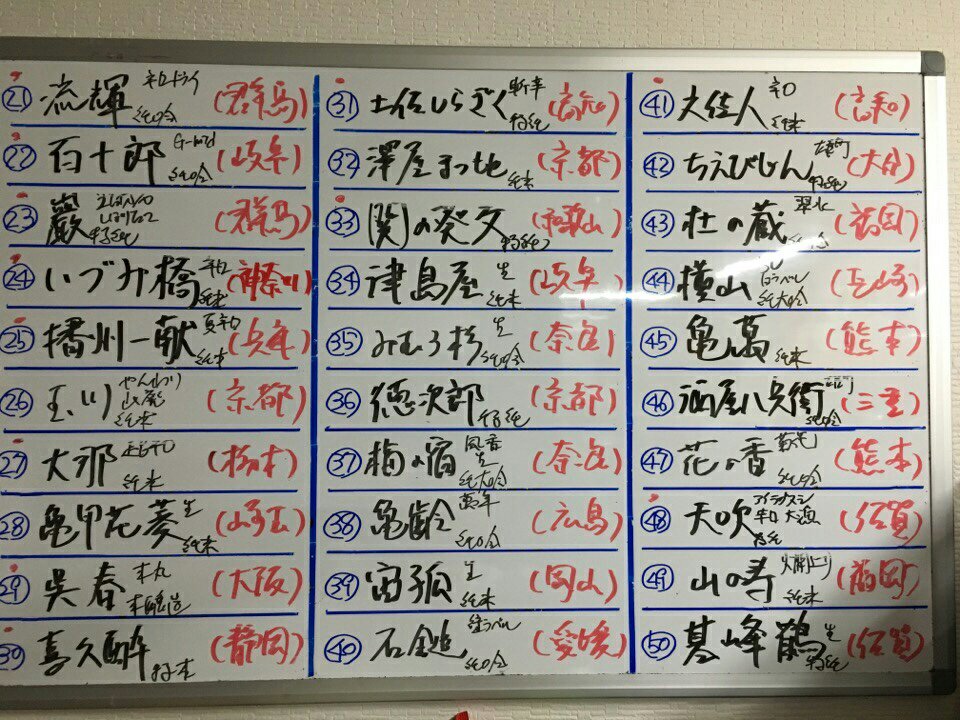 ㉑ 流輝 辛口ドライ 純吟 (群馬)
㉒ 百十郎 G-mid 純吟 (岐阜)
㉓ 巖 特純 (群馬)
㉔ いづみ橋 辛口 純米 (神奈川)
㉕ 播州一献 夏辛口 純米 (兵庫)
㉖ 玉川 やんわり 山廃 純米 (京都)
㉗ 大那 超辛口 純米 (栃木)
㉘ 亀甲花菱 生 純米 (埼玉)
㉙ 呉春 本丸 本醸造 (大阪)
㉚ 喜久酔 (静岡)
㉛ 土佐しらぎく 斬辛 特純 (高知)
㉜ 澤屋まつもと 純米 (京都)
㉝ 関の葵文 特純 (和歌山)
㉞ 津島屋 生 純米 (岐阜)
㉟ みむろ杉 生 純吟 (奈良)
㊱ 徳次郎 特純 (京都)
㊲ 梅の宿 風香 生 純大吟 (奈良)
㊳ 亀齢 萬年 純吟 (広島)
㊴ 宙狐 生 純米 (岡山)
㊵ 石鎚 緑ラベル 純吟 (愛媛)
㊶ 文佳人 辛口 純米 (高知)
㊷ ちえびじん 特純 (大分)
㊸ 杜の蔵 翠水 純吟 (福岡)
㊹ 横山 純大吟 (長崎)
㊺ 亀萬 純米 (熊本)
㊻ 酒屋八兵衛 純吟 (三重)
㊼ 花の香 菊花 純吟 (熊本)
㊽ 天吹 辛口 特純 (佐賀)
㊾ 山の寿 純米 (福岡)
㊿ 基峰鶴 生 特純 (佐賀)